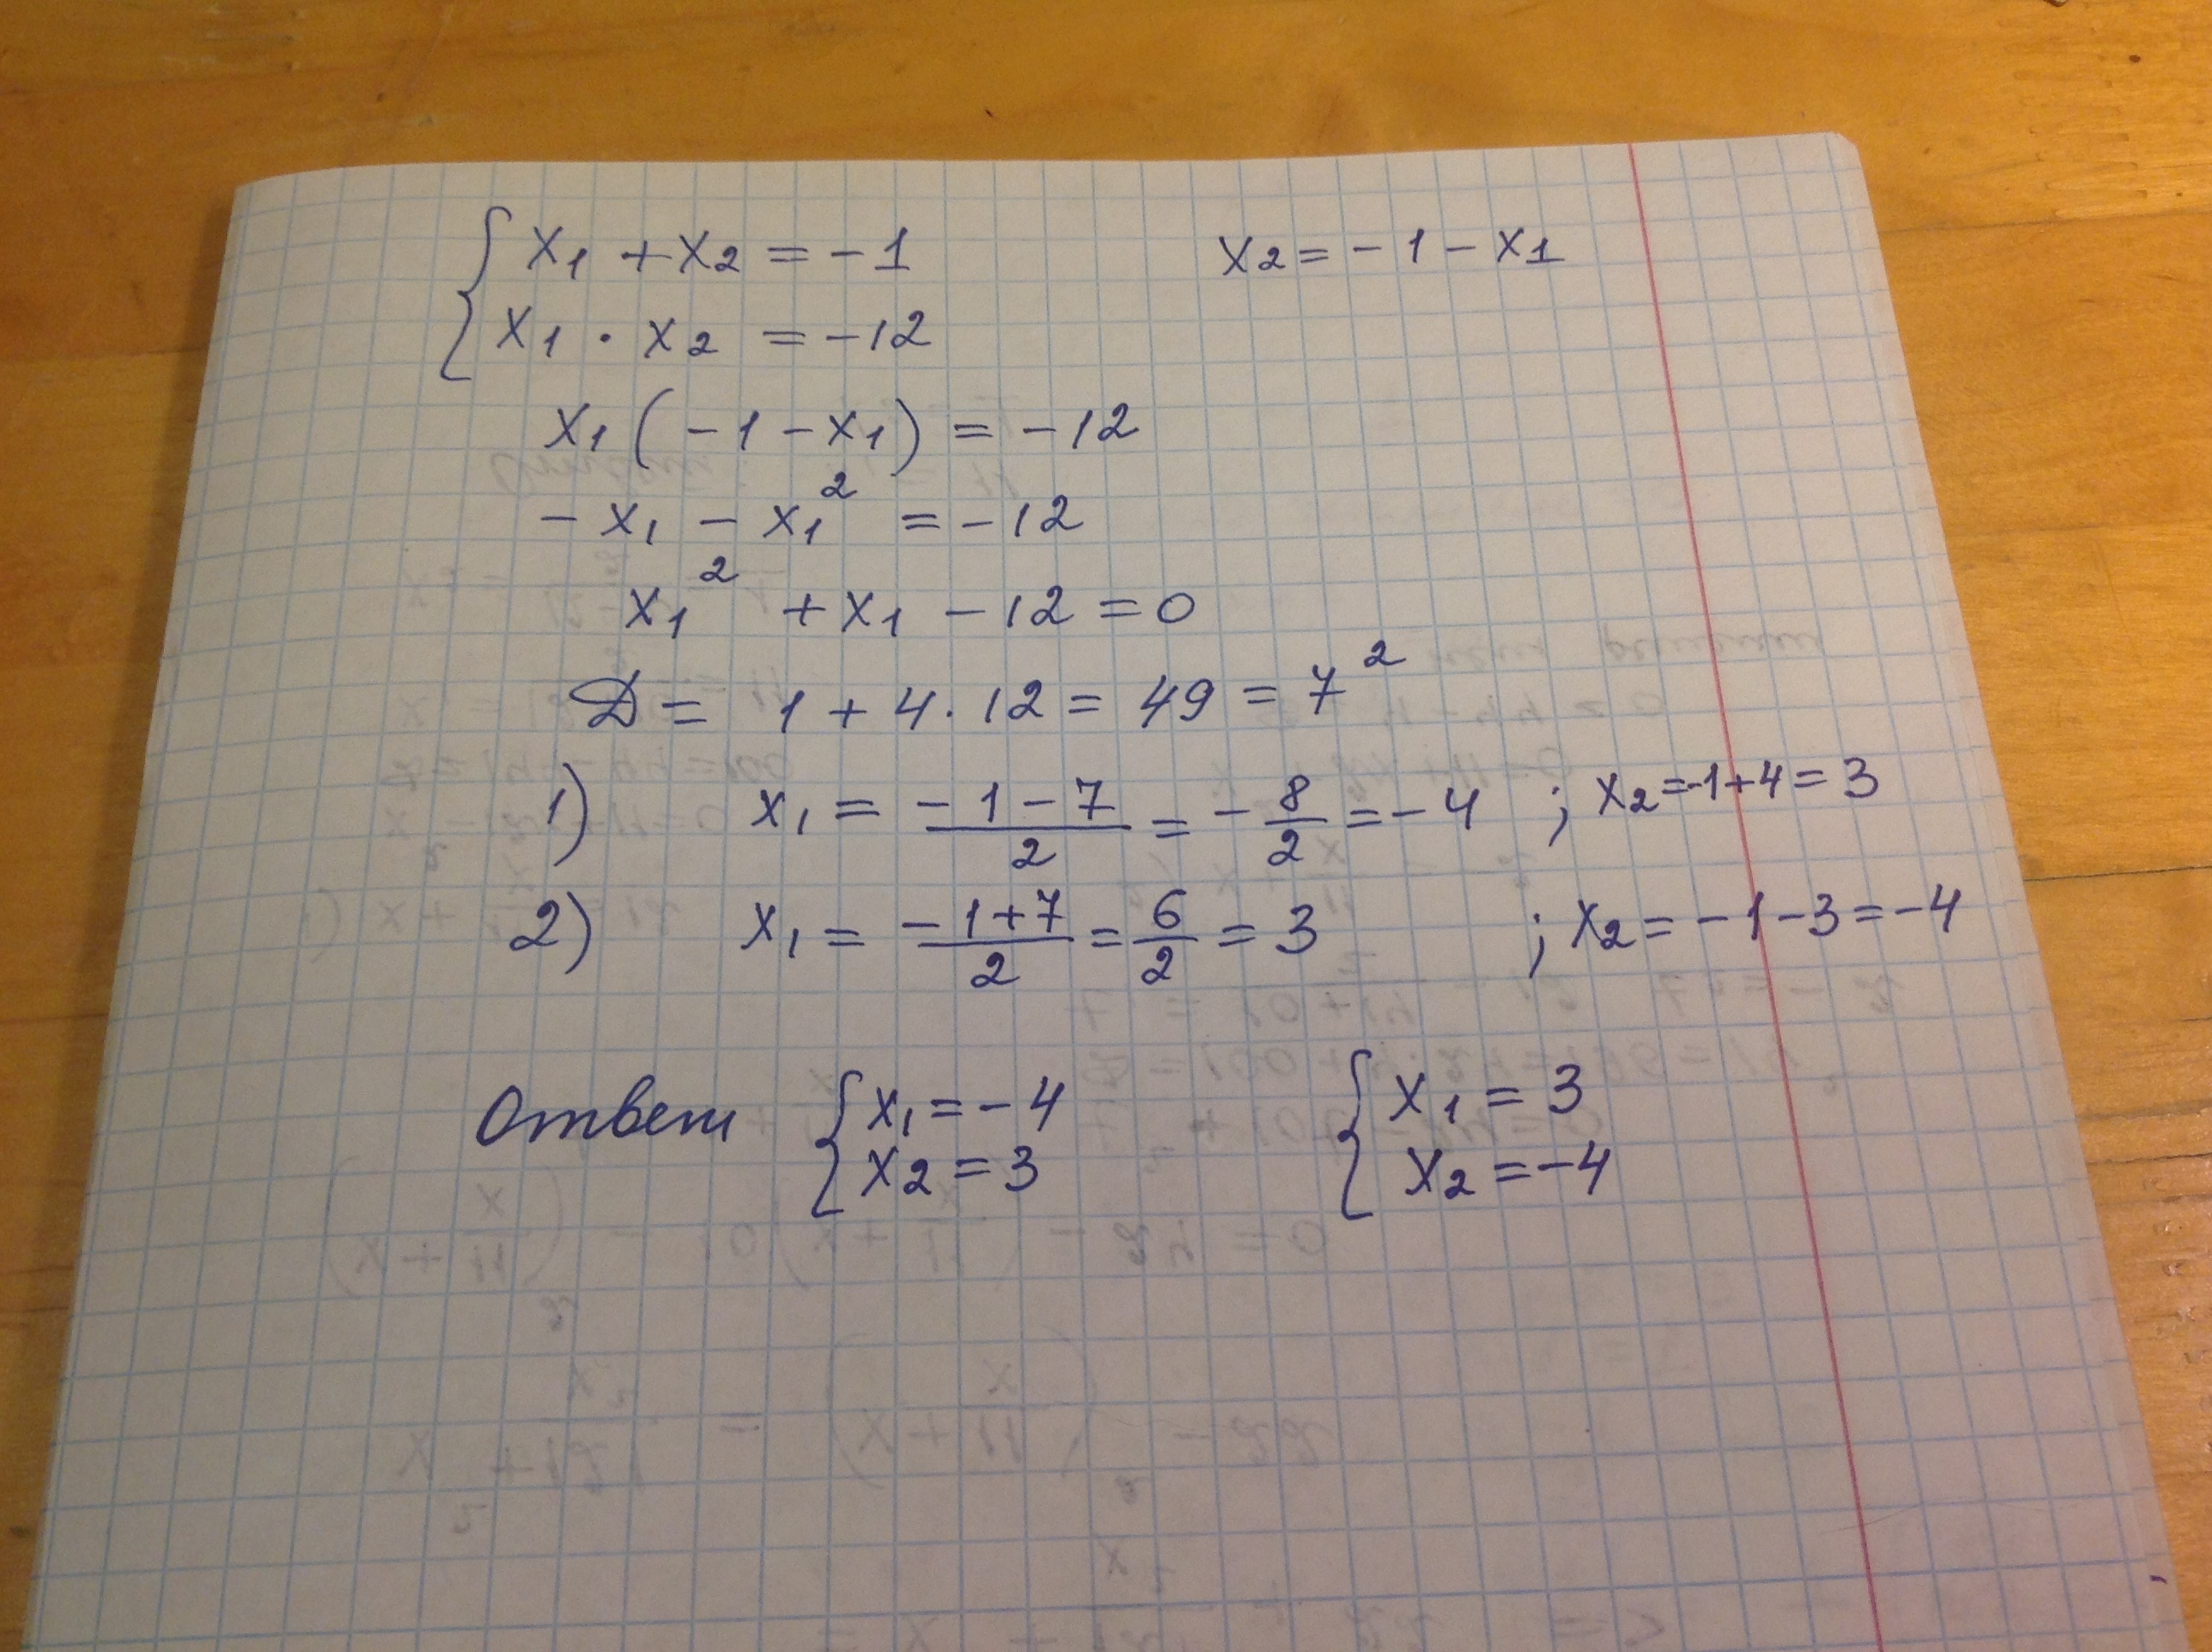 { x₁ + x₂ = -1    x₂ = -1 - x₁
x₁ · x₂ = -12
x₁ ( -1 - x₁ ) = -12
- x₁ - x₁² = -12
x₁² + x₁ - 12 = 0
Д = 1 + 4 · 12 = 49 = 7²
1) x₁ = (-1-7)/2 = -8/2 = -4 ; x₂ = -1+4 = 3
2) x₁ = (-1+7)/2 = 6/2 = 3 ; x₂ = -1-3 = -4
Ответ { x₁ = -4    { x₁ = 3
x₂ = 3    x₂ = -4